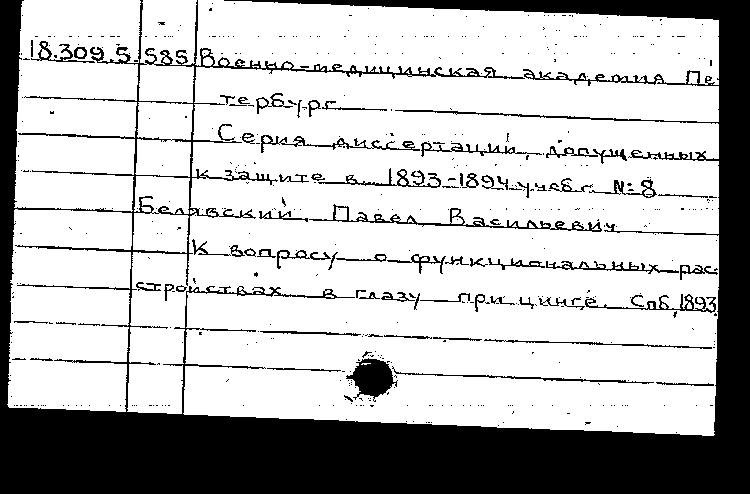 18.309.5.585 Военно-медицинская академия Пе-
тербург.
Серия диссертаций, допущенных
к защите в 1893-1894 учеб.г. №8
Белявский, Павел Васильевич
К вопросу о функциональных рас-
стройствах в глазу при цинге. Спб, 1893